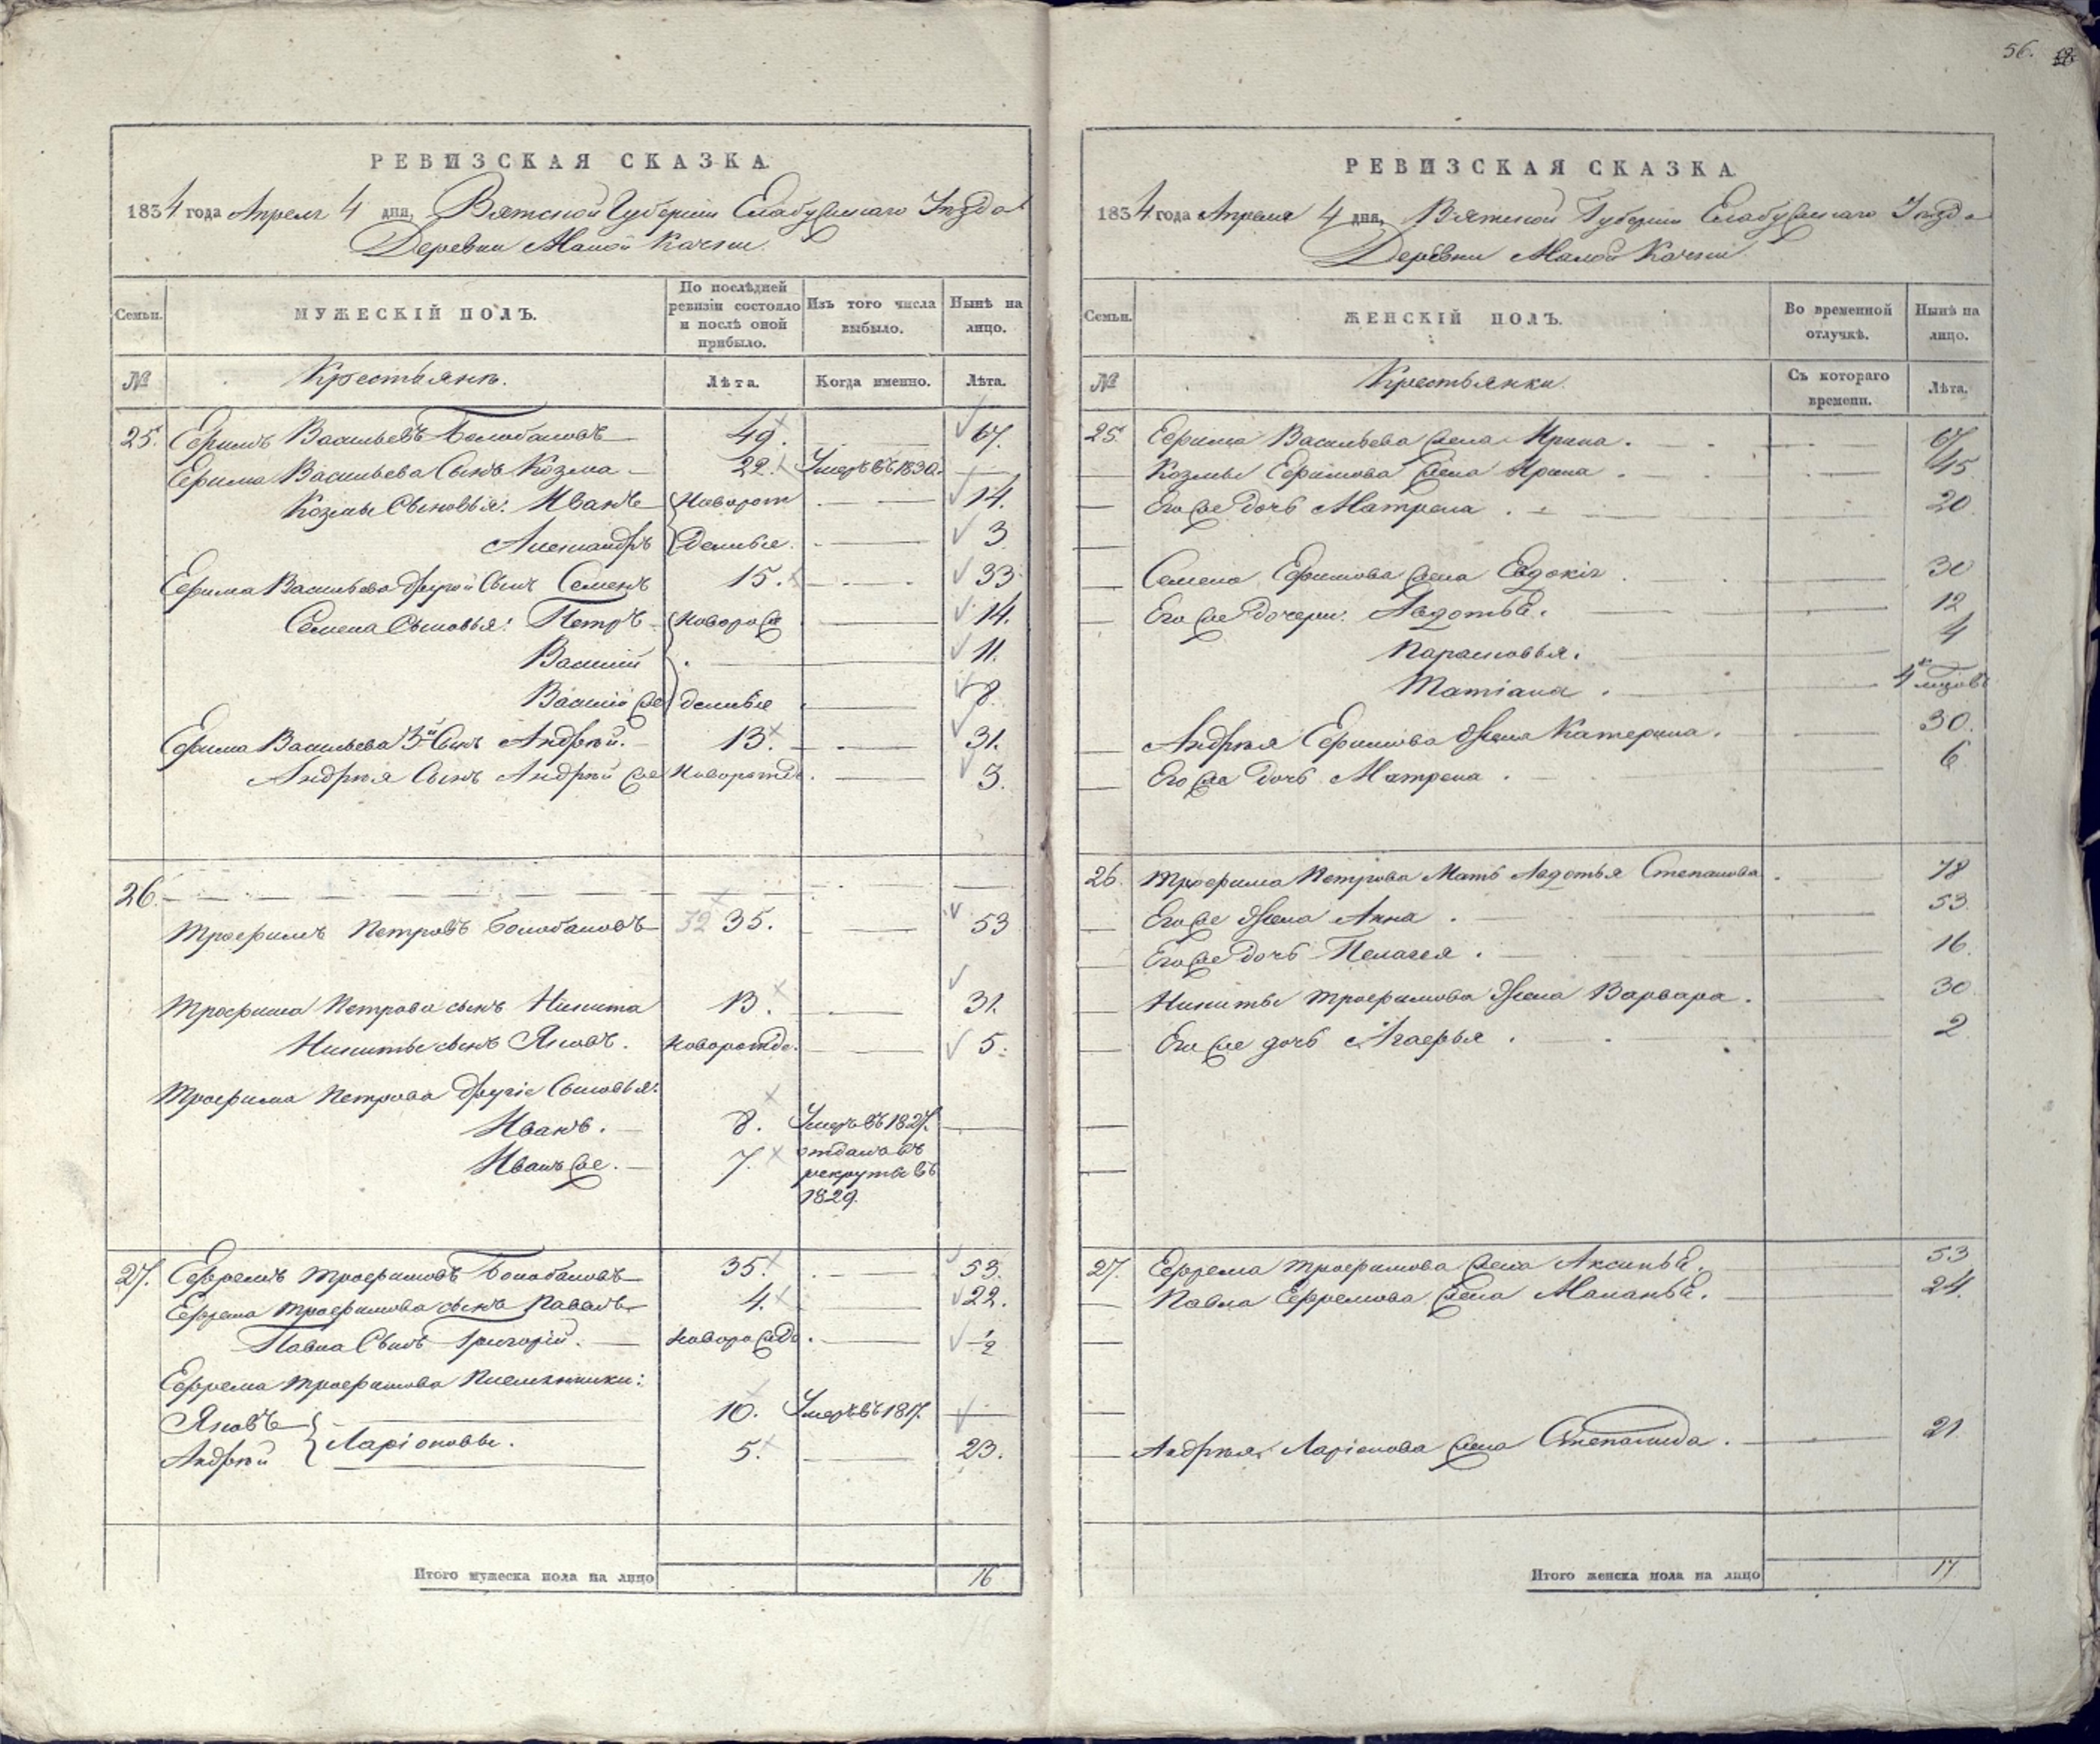 56.
РЕВИЗСКАЯ СКАЗКА
1834 года Апреля 4 дня, Вятской Губернии Елабужскаго Уѣзда
Деревни Малой Качки
Семьи.
МУЖЕСКІЙ ПОЛЪ.
По послѣдней ревизіи состояло и послѣ оной прибыло.
Изъ того числа выбыло.
Нынѣ на лицо.
№
Крестьянѣ.
Лѣта.
Когда именно.
Лѣта.
25. Ефимъ Васильевъ Болобановъ 49. 67.
Ефима Васильева Сынъ Козма 22. Умеръ въ 1830.
Козмы Сыновья: Иванъ Новорож 14.
Александръ денные. 3
Ефима Васильева другой Сынъ Семенъ 15. 33
Семена Сыновья: Петръ Новорож 14.
Василий 11.
Василій же денные 8.
Ефима Васильева 3й Сынъ Андрѣй. 13. 31.
Андрѣя Сынъ Андрѣй же Новорожде. 3.
26.
Трофимъ Петровъ Болобановъ 32 35. 53
Трофима Петрова сынъ Никита 13. 31.
Никиты сынъ Яковъ. Новорожде. 5.
Трофима Петрова другіе Сыновья:
Иванъ. 8. Умеръ въ 1827.
Иванъ же. 7. отданъ въ
рекруты въ
1829.
27. Ефремъ Трофимовъ Болобановъ 35. 53.
Ефрема Трофимова сынъ Павелъ 4. 22.
Павла Сынъ Григорій. Новорожде. 1/2
Ефрема Трофимова Племянники:
Яковъ 10. Умеръ въ 1817.
Ларіоновы.
Андрѣй 5. 23.
Итого мужеска пола на лицо 16
РЕВИЗСКАЯ СКАЗКА
1834 года Апреля 4 дня, Вятской Губерніи Елабужскаго Уѣзда
Деревни Малой Качки
Семьи.
ЖЕНСКІЙ ПОЛЪ.
Во временной отлучкѣ.
Нынѣ на лицо.
№
Крестьянки.
Съ котораго времени.
Лѣта.
25. Ефима Васильева жена Ирина. 67
Козмы Ефимова жена Ирина. 45
Его же дочь Матрена. 20
Семена Ефимова жена Евдокія. 30
Его же дочери: Авдотья. 12
Парасковья. 4
Татіана. 4 мѣсяц
Андрѣя Ефимова жена Катерина. 30.
Его же дочь Матрена. 6
26. Трофима Петрова Мать Авдотья Степанова. 78
Его же жена Анна. 53.
Его же дочь Пелагея. 16.
Никиты Трофимова жена Варвара. 30.
Его же дочь Агафья. 2
27. Ефрема Трофимова жена Аксинья. 53
Павла Ефремова жена Маланья. 24.
Андрѣя Ларіонова жена Степанида. 21
Итого женска пола на лицо 17